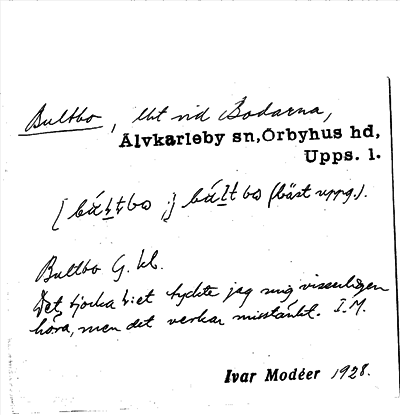 Bultbo, lht vid Bodarna,
Älvkarleby sn, Örbyhus hd,
Upps. l.
[búl̩tbo ;] búl̩tbo (bäst uppg.).
Bultbo G. kl.
Det tjocka l:et tyckte jag mig visserligen
höra, men det verkar misstänkt. I. M.
Ivar Modéer 1928.